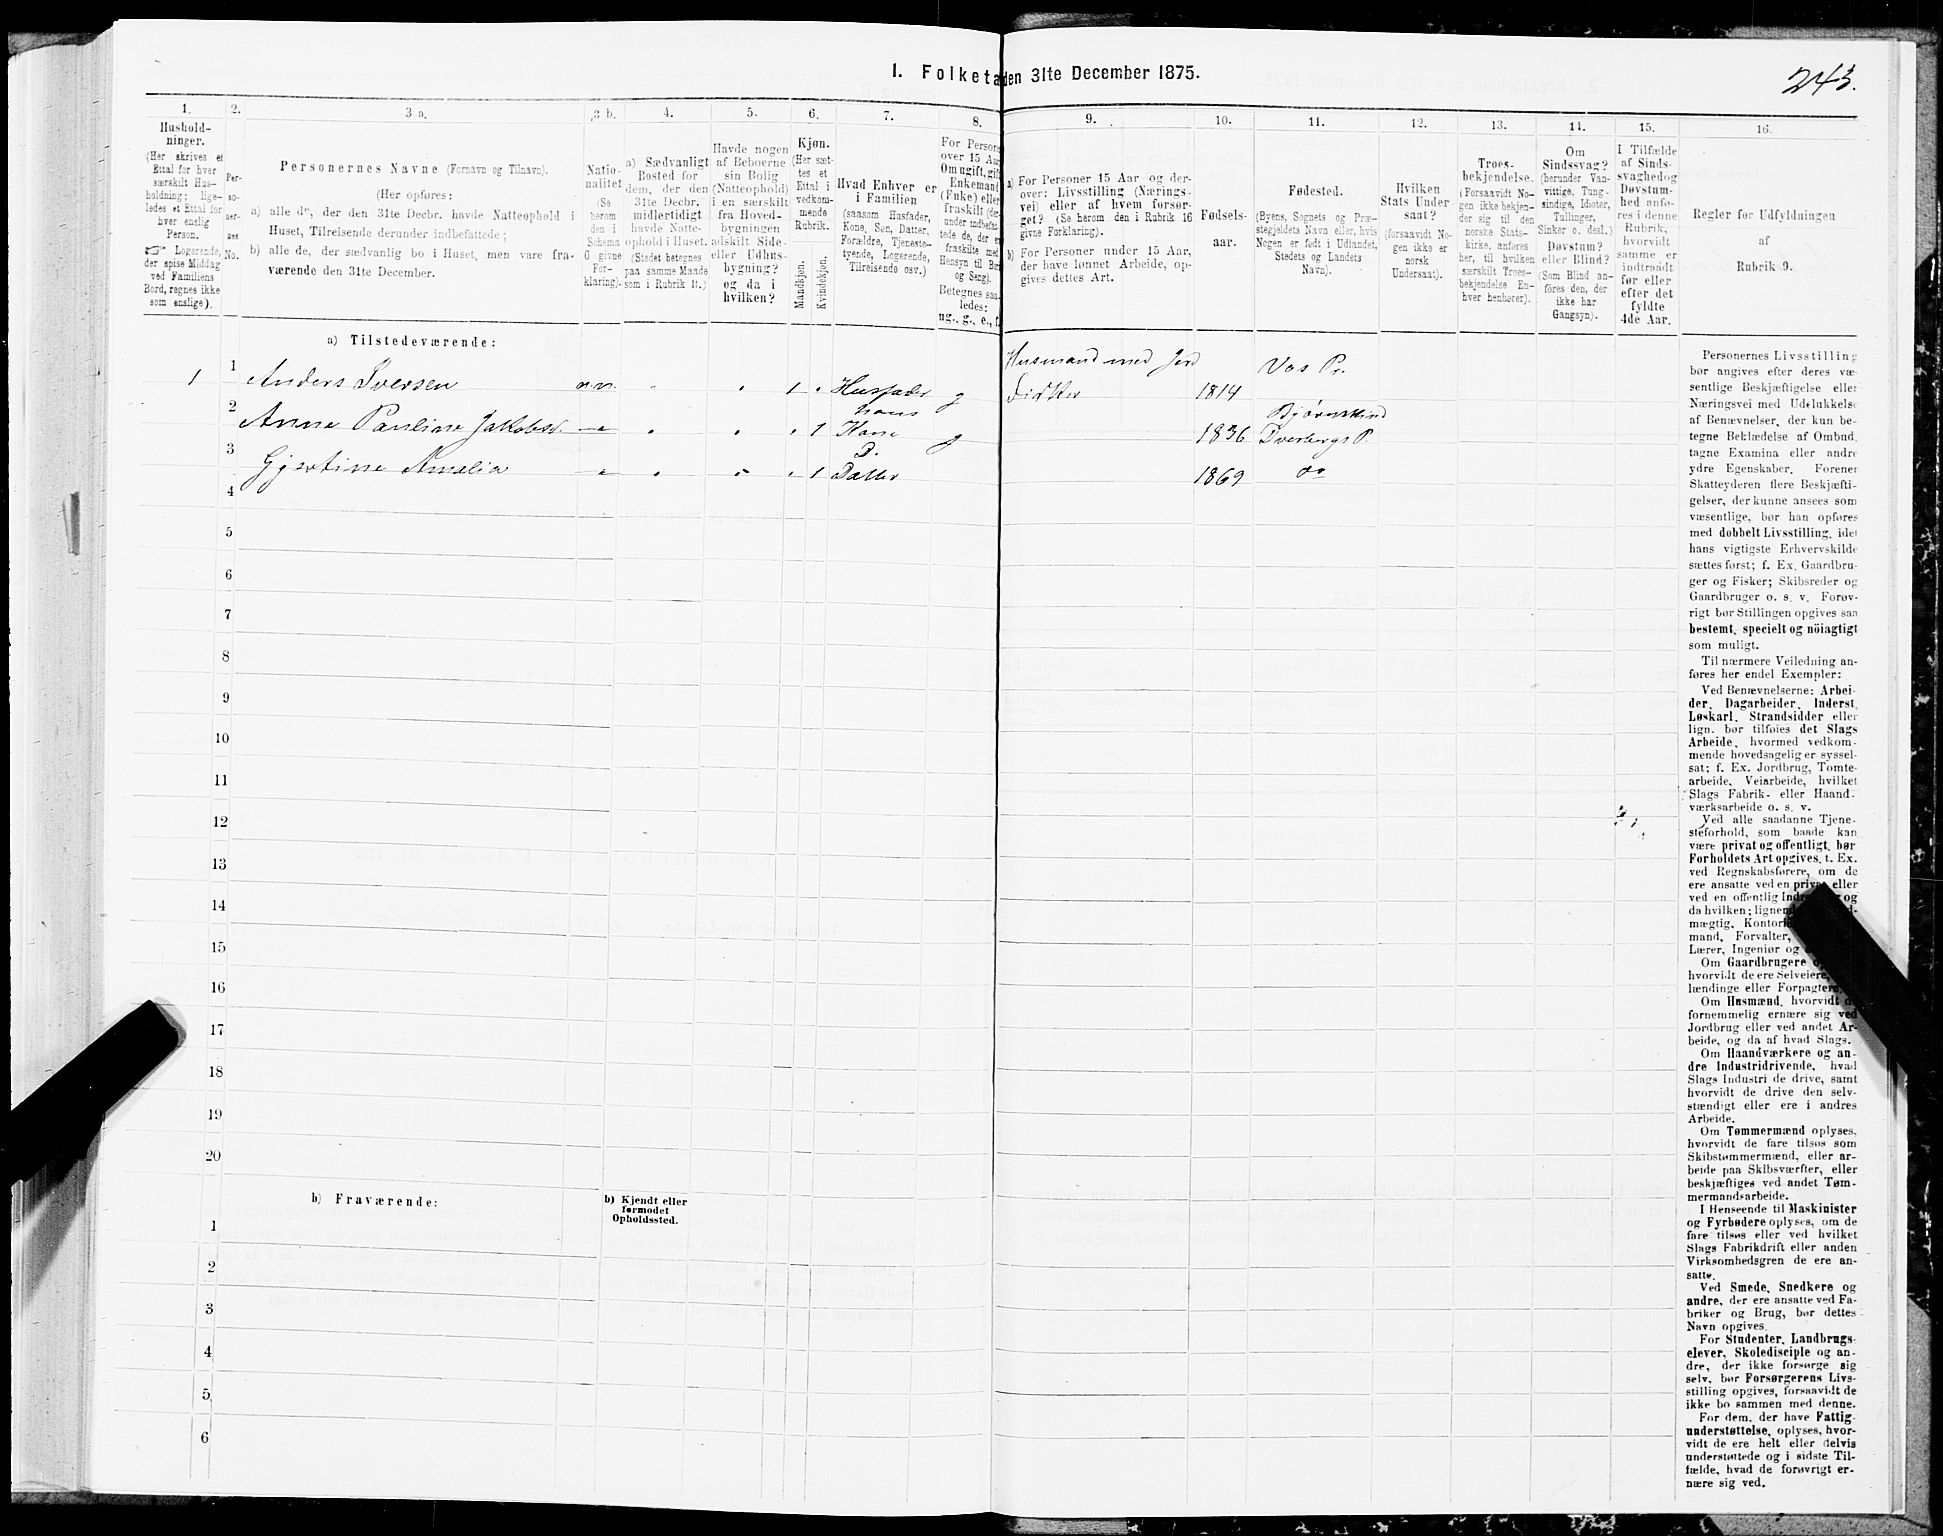 I. Folketa den 31te December 1875.
243.
1.
Hushold-
ninger.
(Her skrives et
Ettal for hver
særskilt Hus-
holdning; lige-
ledes et Ettal for
hver enslig
Person.
☞ Logerende,
der spise Middag
ved Familiens
Bord, regnes ikke
som enslige).
2.
Per-
so-
ner-
nes
No.
3 a.
Personernes Navne (Fornavn og Tilnavn).
(Her opføres:
a) alle de, der den 31te Decbr. havde Natteophold i
Huset, Tilreisende derunder indbefattede;
b) alle de, der sædvanlig bo i Huset, men vare fra-
værende den 31te December.
3 b.
Natio-
nalitet
(Se
herom
den i
Schema
O givne
For-
klaring).
4.
a) Sædvanligt
Bosted for
dem, der den
31te Decbr.
midlertidigt
havde Natte-
ophold i Huset.
(Stedet betegnes
paa samme Maade
som i Rubrik 11.)
5.
Havde nogen
af Beboerne
sin Bolig
(Natteophold)
i en særskilt
fra Hoved-
bygningen
adskilt Side-
eller Udhus-
bygning?
og da i
hvilken?
6.
Kjøn.
(Her sæt-
tes et
Ettal i
vedkom-
mende
Rubrik.
Mandkjøn.
Kvindekjøn.
7.
Hvad Enhver er
i Familien
(saasom Husfader,
Kone, Søn, Datter,
Forældre, Tjeneste-
tyende, Logerende,
Tilreisende osv.)
8.
For Persone
over 15 Aar
Om ugift, gift
Enkemand
(Enke) eller
fraskilt (der-
under indbefat-
tede de, der er
fraskilte med
Hensyn til Bor
og Seng).
Betegnes saa-
ledes:
ug., g., e., f.
9.
a) For Personer 15 Aar og der-
over: Livsstilling (Nærings-
vei) eller af hvem forsør-
get? (Se herom den i Rubrik 16
givne Forklaring).
b) For Personer under 15 Aar,
der have lønnet Arbeide, op-
gives dettes Art.
10.
Fødsels-
aar.
11.
Fødested.
(Byens, Sognets og Præ-
stegjeldets Navn eller, hvis
Nogen er født i Udlandet,
Stedets og Landets
Navn).
12.
Hvilken
Stats Under
saat?
(forsaavidt No-
gen ikke er
norsk
Undersaat).
13.
Troes-
bekjendelse.
(Forsaavidt No-
gen ikke bekjen-
der sig til den
norske Stats-
kirke, anføres
her, til hvilken
særskilt Troes-
bekjendelse En-
hver henhører).
14.
Om
Sindssvag?
(herunder Van-
vittige, Tung-
sindige, Idioter,
Tullinger,
Sinker o. desl.)
Døvstum?
eller Blind?
(Som Blind an-
føres den, der
ikke har
Gangsyn).
15.
I Tilfælde
af Sinds-
svaghed og
Døvstum-
hed anfø-
res i denne
Rubrik,
hvorvidt
samme er
indtraadt
før eller
efter det
fyldte
4de Aar.
16.
Regler for Udfyldningen
af
Rubrik 9.
a) Tilstedeværende:
1 1 Anders Iversen n.n. 1 Husfader g Husmand med Jord Fisker 1814 Vos Pr.
2 Anne Pauline Jakobsd. 1 hans Kone g 1836 Bjørnskind Dverbergs P.
3 Gjertine Amalia 1 D. Datter 1869 do
4
5
6
7
8
9
10
11
12
13
14
15
16
17
18
19
20
b) Fraværende:
b) Kjendt eller
formodet
Opholdssted.
1
2
3
4
5
6
Personernes Livsstilling
bør angives efter deres væ-
sentlige Beskjæftigelse eller
Næringsvei med Udelukkelse
af Benævnelser, der kun be-
tegne Beklædelse af Ombud,
tagne Examina eller andre
ydre Egenskaber. Forener
Skatteyderen flere Beskjæfti-
gelser, der kunne ansees som
væsentlige, bør han opføres
med dobbelt Livsstilling, idet
hans vigtigste Erhvervskilde
sættes først; f. Ex. Gaardbru-
ger og Fisker; Skibsreder og
Gaardbruger o. s. v. Forøv-
rigt bør Stillingen opgives saa
bestemt, specielt og nöiagtigt
som muligt.
Til nærmere Veiledning an-
føres her endel Exempler:
Ved Benævnelserne: Arbei-
der, Dagarbeider, Inderst,
Løskarl, Strandsidder eller
lign. bør tilføies det Slags
Arbeide, hvormed vedkom-
mende hovedsagelig er syssel-
sat; f. Ex. Jordbrug, Tomte-
arbeide, Veiarbeide, hvilket
Slags Fabrik- eller Haand-
værksarbeide o. s. v.
Ved alle saadanne Tjene-
steforhold, som baade kan
være privat og offentligt, bør
Forholdets Art opgives, t. Ex.
ved Regnskabsførere, om de
ere ansatte ved en privat eller
ved en offentlig Ind og
da hvilken; lignen d-
mægtig, Kontori
mand, Forvalter,
Lærer, Ingeniør og
Om Gaardbrugere
hvorvidt de ere Selveiere,
lændinge eller Forpagtere.
Om Husmænd, hvorvidt
fornemmelig ernære sig ved
Jordbrug eller ved andet Ar-
beide, og da af hvad Slags.
Om Haandværkere og an-
dre Industridrivende, hvad
Slags Industri de drive, samt
hvorvidt de drive den selv-
stændigt eller ere i andres
Arbeide.
Om Tømmermænd oplyses,
hvorvidt de fare tilsøs som
Skibstømmermænd, eller ar-
beide paa Skibsværfter, eller
beskjæftiges ved andet Tøm-
mermandsarbeide.
I Henseende til Maskinister
og Fyrbødere oplyses, om de
fare tilsøs eller ved hvilket
Slags Fabrikdrift eller anden
Virksomhedsgren de ere an-
satte.
Ved Smede, Snedkere og
andre, der ere ansatte ved Fa-
briker og Brug, bør dettes
Navn opgives.
For Studenter, Landbrugs-
elever, Skoledisciple og an-
dre, der ikke forsørge sig
selv, bør Forsørgerens Livs-
stilling opgives, forsaavidt de
ikke bo sammen med denne.
For dem, der have Fattig-
understøttelse, oplyses, hvor-
vidt de ere helt eller delvis
understøttede og i sidste Til-
fælde, hvad de forøvrigt er-
nære sig ved.